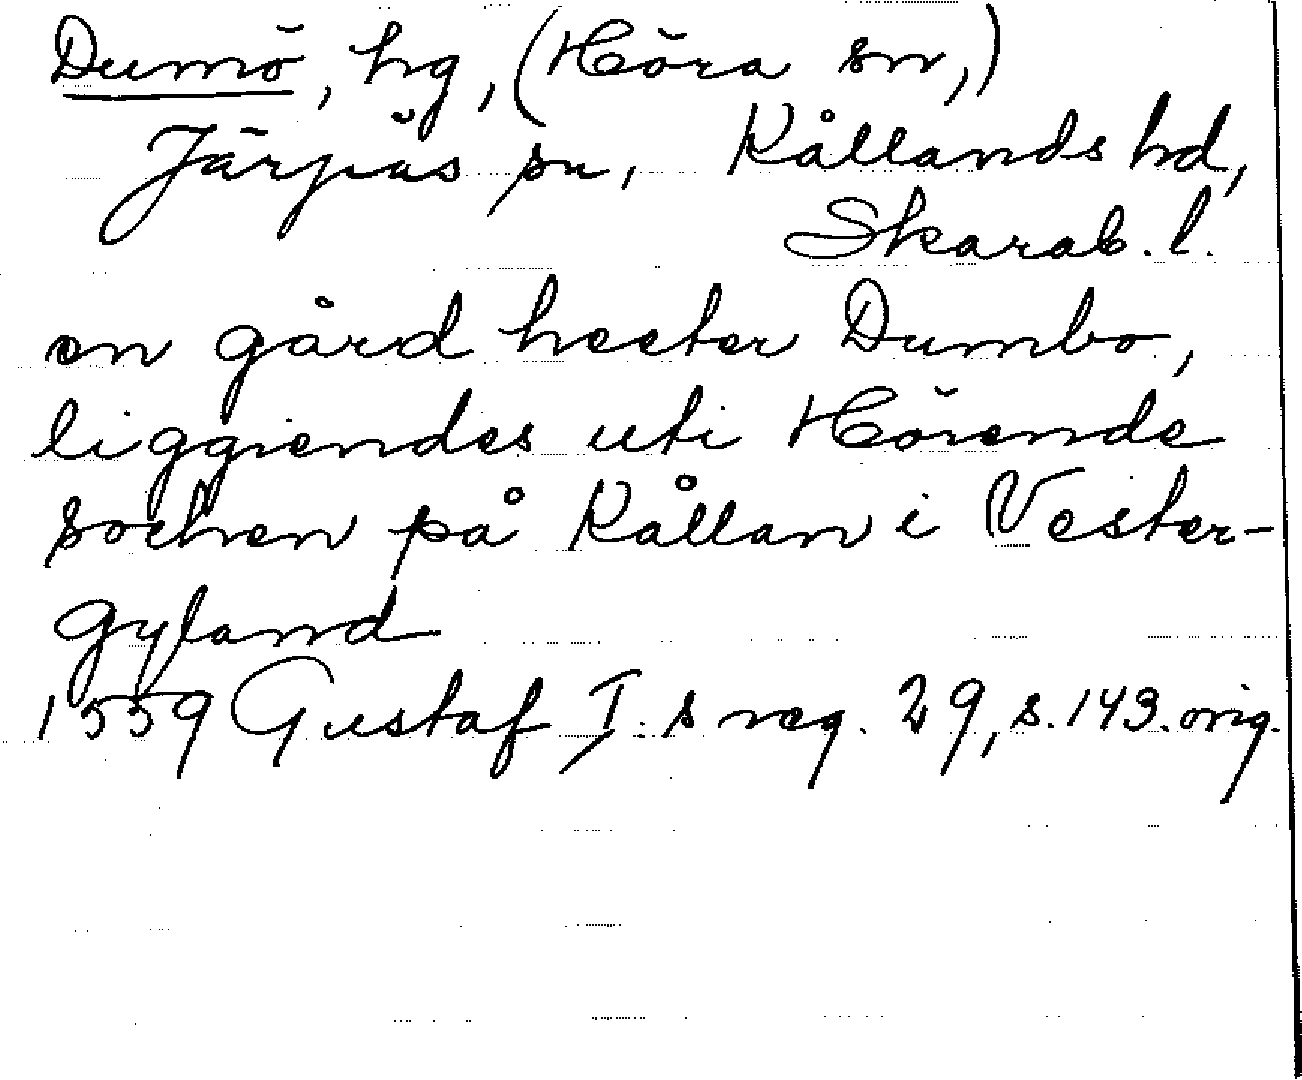 Dumö, hg, (Höra sn,)
Järpås sn, Kållands hd,
Skarab. l.
en gård heeter Dumbo,
liggiendes uti Hörende
sochen på Kållan i Vester-
gyland
1559 Gustaf I:s reg. 29, s. 143. orig.